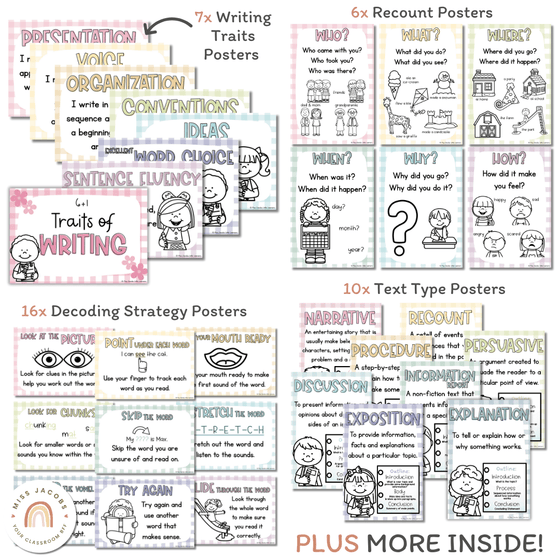 7x Writing
Traits
Posters
PRESENTATION
VOICE
ORGANIZATION
I write in
sequence a
a beginning
CONVENTIONS
IDEAS
EXCELLENT WORD CHOICE
SENTENCE FLUENCY
6+1
Traits of
WRITING
6x Recount Posters
WHO?
Who came with you?
Who took you?
Who was there?
friends
dad & mom
grandparents
WHAT?
What did you do?
What did you see?
ate an ice cream
made a snowman
saw a giraffe
made a sandcastle
WHERE?
Where did you go?
Where did it happen?
at home
a party
at school
the farm
the park
WHEN?
When was it?
When did it happen?
day?
month?
year?
WHY?
Why did you go?
Why did you do it?
?
HOW?
How did it make
you feel?
happy
sad
angry
scared
16x Decoding Strategy Posters
LOOK AT THE PICTURE
Look for clues in the picture
help you work out the word
POINT UNDER EACH WORD
I can see the cat.
Use your finger to track each
word as you read.
YOUR MOUTH READY
your mouth ready to make
first sound of the word.
LOOK FOR CHUNKS
Look for smaller words or
sounds you know within the
SKIP THE WORD
My ???? is Max.
Skip the word you are
unsure of and read on.
STRETCH THE WORD
S-T-R-E-T-C-H
tretch out the word and
listen to the sounds.
THE VOWEL
TRY AGAIN
Try again and
use another
word that
makes sense.
LIDE THROUGH THE WORD
Look through
the whole word
to make sure
you read it
correctly.
MISS JACOBS
YOUR CLASSROOM BFF
10x Text Type Posters
NARRATIVE
An entertaining story that is
usually make belie
characters, setting
problem and a
RECOUNT
A retell of events
PROCEDURE
A step-by-step
PERSUASIVE
argument created to
ade the reader to a
ticular point of view.
DISCUSSION
To present inform
opinions about d
sides of an is
INFORMATION
REPORT
A non-fiction text that
EXPOSITION
To provide information,
facts and explanations
about a particular topic.
Outline
Introduction
Body
Conclusion
EXPLANATION
To tell or explain how or
why something works.
Outline
Introduction
Process
PLUS MORE INSIDE!